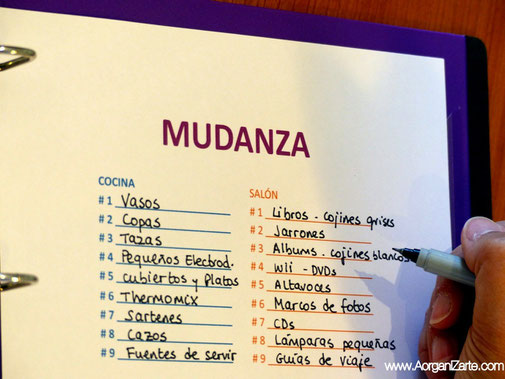 MUDANZA
COCINA
#1 Vasos
#2 Copas
#3 Tazas
#4 Pequeños Electrod.
#5 cubiertos y platos
#6 Thermomix
#7 Sartenes
#8 Cazos
#9 Fuentes de servir
SALÓN
#1 Libros - cojines grises
#2 Jarrones
#3 Albums - cojines blancos
#4 Wii - DVDs
#5 Altavoces
#6 Marcos de fotos
#7 CDs
#8 Lámparas pequeñas
#9 Guías de viaje
www.AorganiZarte.com